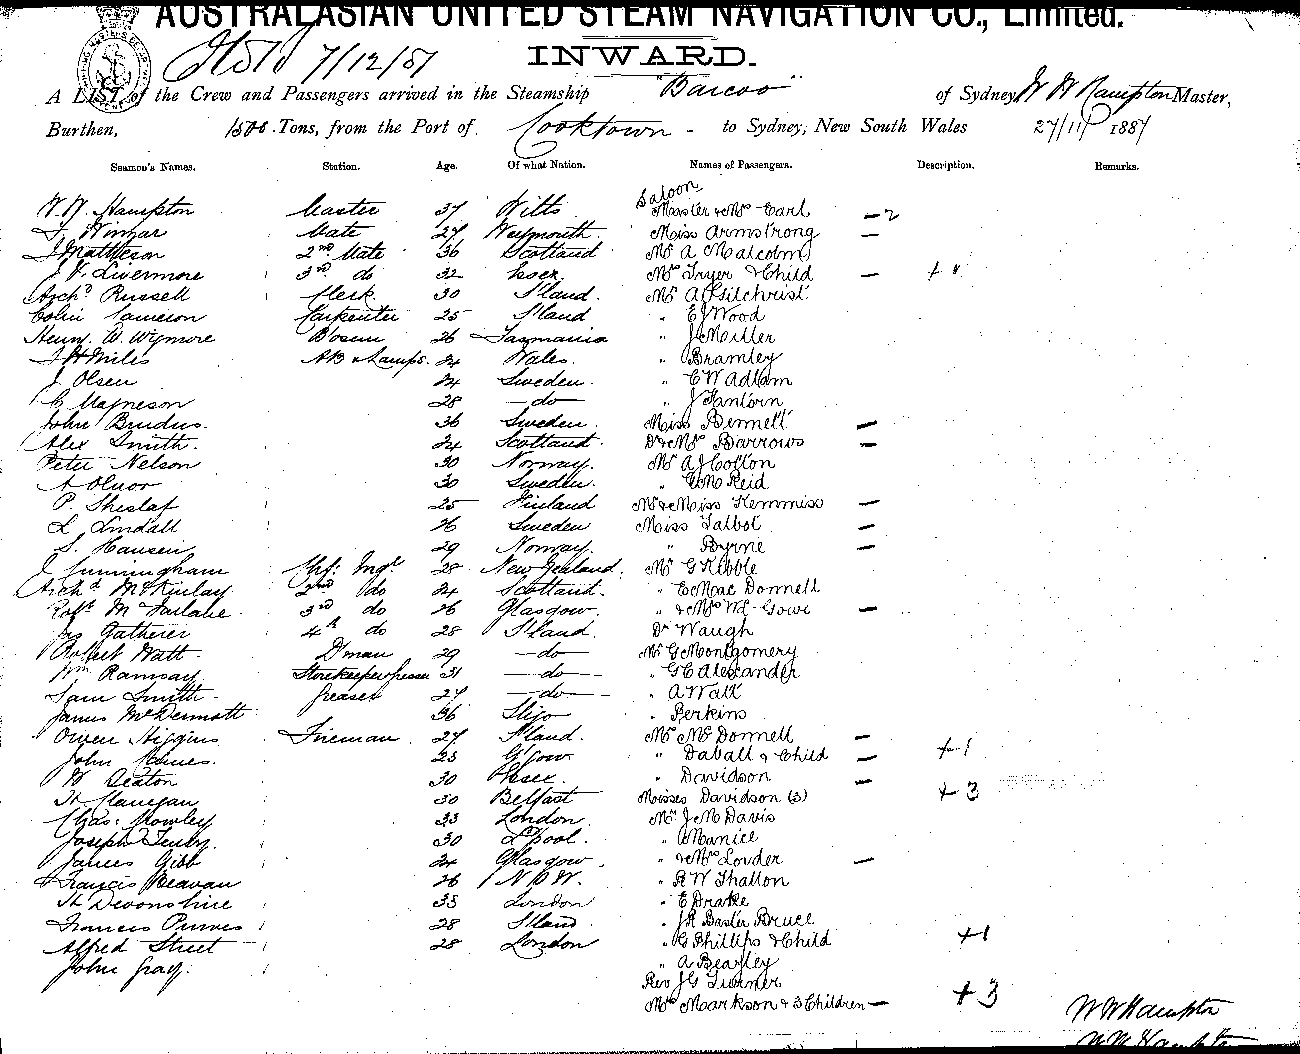 AUSTRALASIAN UNITED STEAM NAVIGATION CO., Limited.
7/12/87
INWARD.
A LIST of the Crew and Passengers arrived in the Steamship "Barcoo" of Sydney W W Hampton Master,
Burthen, 1500 Tons, from the Port of Cooktown - to Sydney, New South Wales 27/11/ 1887
Seamen's Names. Station. Age. Of what Nation. Names of Passengers. Description. Remarks.
Saloon
W. W. Hampton Master 37 Wilts Master & Mrs Earl — 2
Mate 27 Weymouth Miss Armstrong —
J Matheson 2nd Mate 36 Scotland Mr A Malcolm
J. V. Livermore 3rd do 32 Essex Mrs Fryer & Child — +
Archd Russell Clerk 30 S'land. Mr A Gilchrist
Colin Jameson Carpenter 25 S'land " E J Wood
Henry. W. Wymore B'osun 26 Tasmania " J C Miller
J H Miles AB & Lamps. 24 Wales. " Bramley
J Olsen 24 Sweden. " E W Adlam
C Magneson 28 — do — " J
John Brudus. 36 Sweden Miss Bennett —
Alex Smith. 24 Scotland Dr & Mrs Barrows —
Peter Nelson 30 Norway. Mr A J Cotton
30 Sweden. " Reid
P. Sheslaf 25 Finland Mr & Miss Kemmiss —
L Lindall 26 Sweden Miss Talbot —
S. Hansen 29 Norway. " Byrne —
J Cunningham Chf: Engr 28 New Zealand. Mr G Kibble
Archd McKinlay 2nd do 24 Scotland. " E Mac Donnell
Robt McFarlane 3rd do 26 Glasgow. " & Mrs Gowe —
Jas Gatherer 4th do 28 S'land. Dr Waugh
Robert Watt D'man 29 — do — Mr G Montgomery
Wm Ramsay Storekeeper Greaser 31 — do — " G C Alexander
Sam Smith Greaser 27 — do — " A Watt
James McDermott 36 Sligo " Perkins
Owen Higgins Fireman 27 S'land. Mrs McDonnell —
John James. 25 G'gow " Daball & Child — + 1
W Seaton 30 Essex. " Davidson —
Th Flanegan 30 Belfast Misses Davidson (3) + 3
Chas: Rowley 33 London Mr J M Davis
Joseph 30 L'pool. " Manice
James Gibb 24 Glasgow. " & Mrs Louder —
Francis Beavan 26 N S W. " R W Thallon
Th Devonshire 33 London " E Drake
Francis Purves 28 S'land " J R Baxter Bruce
Alfred Street 28 London " G Phillips & Child + 1
John Gray. " A Beazley
Rev J G Turner
Mrs Markson & 3 Children — + 3
W W Hampton
W W Hampton